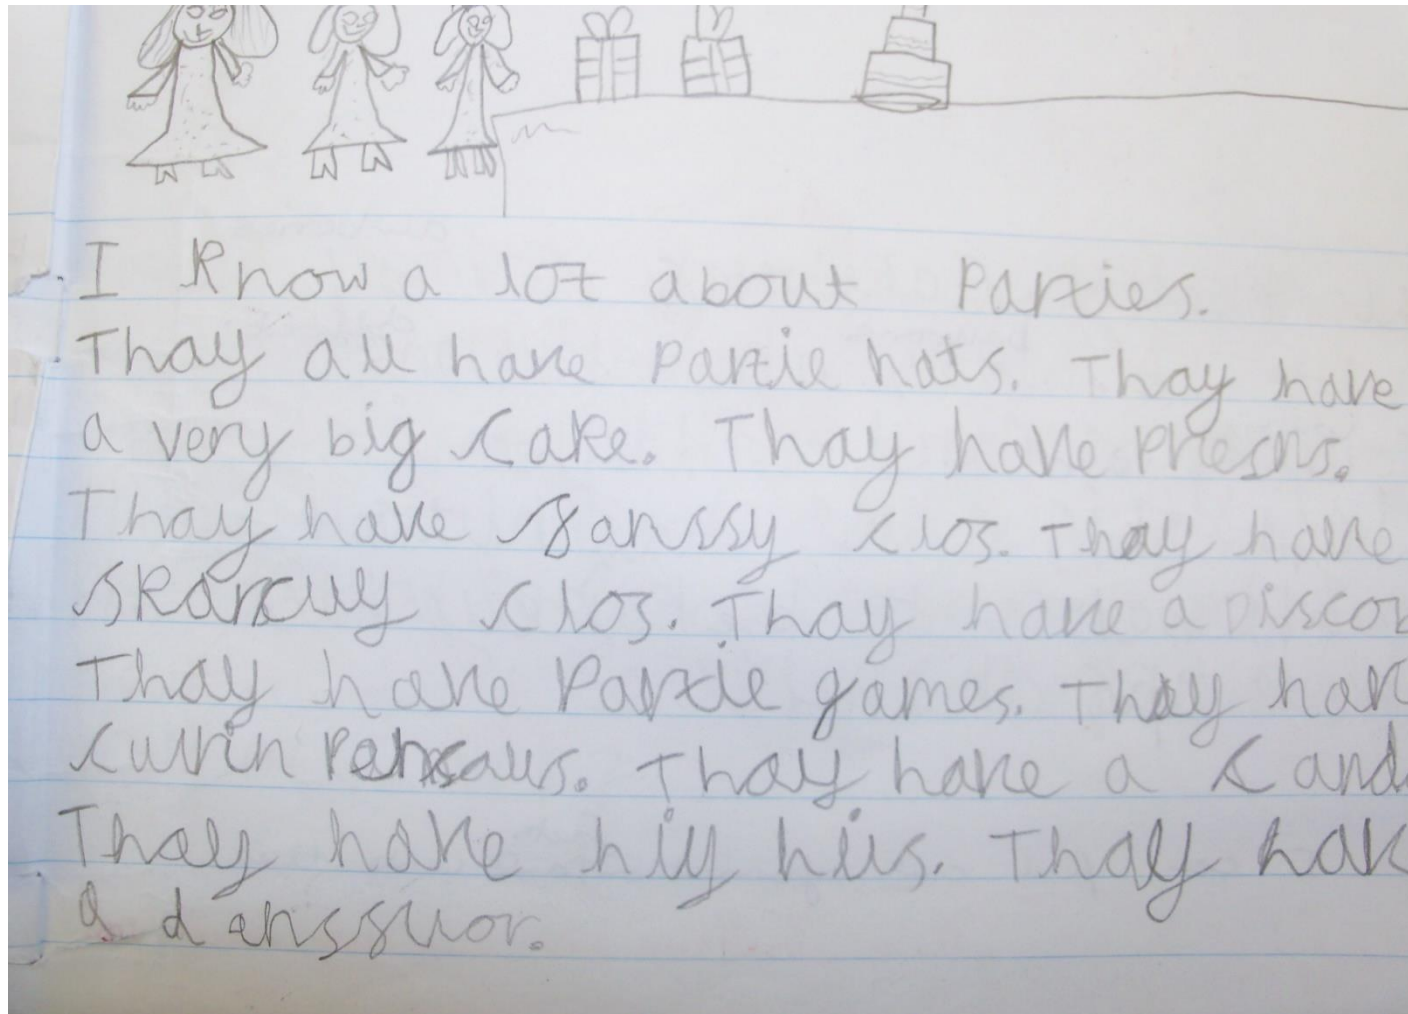 I know a lot about Parties.
Thay all have Partie hats. Thay have
a very big cake. Thay have Presns.
Thay have fanssy clos. Thay have
clos. Thay have a Disco
Thay have Partie games. Thay hav
Thay have a cand
Thay have hiy hils. Thay hav
a